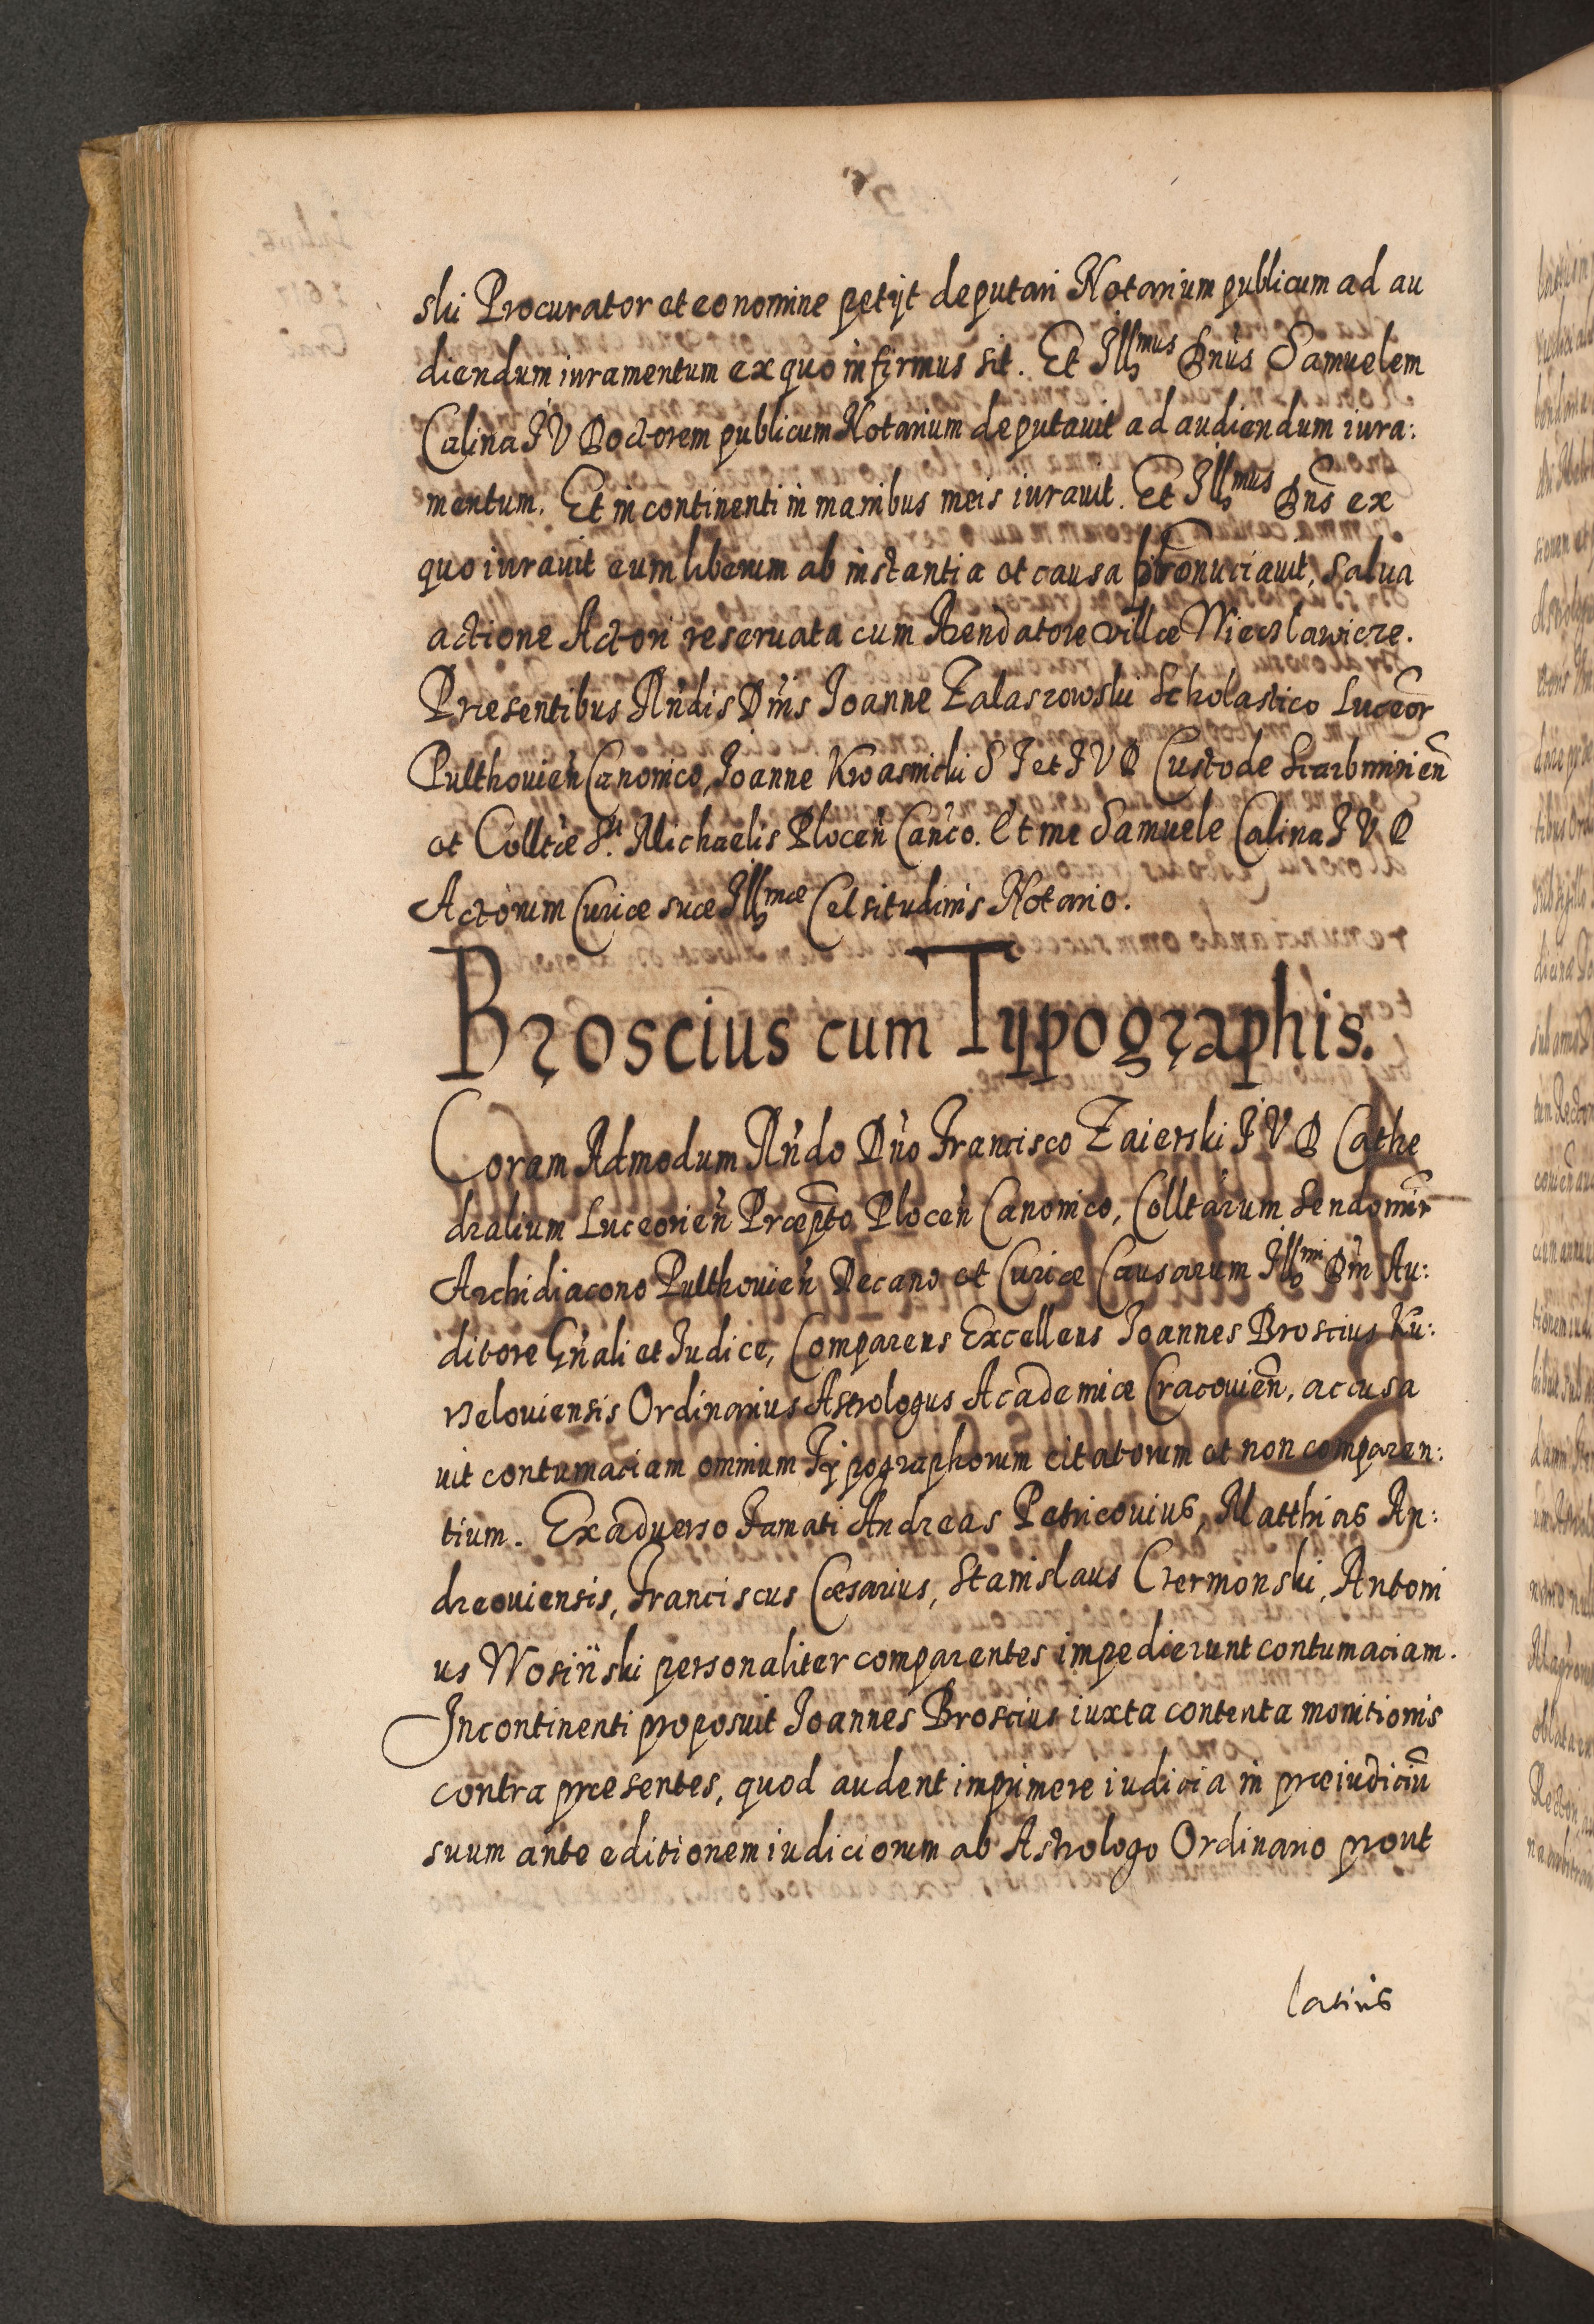 ski Procurator et eo nomine petijt deputari Notarium publicum ad au
diendum iuramentum ex quo infirmus sit. Et Illmus Dn̄us Samuelem
Calina I V Doctorem publicum Notarium deputauit ad audiendum iura:
mentum. Et in continenti in manibus meis iurauit. Et Illmus Dn̄s ex
quo iurauit eum liberum ab instantia et causa pronūciauit, salua
actione Actori reseruata cum Arendatore villæ Wierzlawicze.
Præsentibus Rn̄dis Dn̄is Joanne Zalaszowski Scholastico Luceor̄
Pulthouien̄ Canonico, Joanne Kwasnicki S T et I V D Custode Skarbmirien̄
et Colltæ S.ti Michaelis Plocen̄ Can̄co. Et me Samuele Calina I V D
Actorum Curiæ suæ Illmæ Celsitudinis Notario.
Broscius cum Typographis.
Coram Admodum Rn̄do Dn̄o Francisco Zaierski I V D Cathe
dralium Luceorien̄ Præpto Plocen̄ Canonico, Colltarum Sendomir̄
Archidiacono Pulthouien̄ Decano et Curiæ Causarum Illmi Dn̄i Au:
ditore Gn̄ali et Iudice, Comparens Excellens Joannes Broscius Ku:
rzelouiensis Ordinarius Astrologus Academiæ Cracouien̄, accusa
uit contumaciam omnium Typographorum citatorum et non comparen:
tium. Ex aduerso Famati Andreas Petricouius, Matthias An:
dreouiensis, Franciscus Cæsarius, Stanislaus Czermonski, Antoni
us Wosiński personaliter comparentes impedierunt contumaciam.
Incontinenti proposuit Joannes Broscius iuxta contenta monitionis
contra præsentes, quod audent imprimere iudicia in præiudiciū
suum ante editionem iudiciorum ab Astrologo Ordinario prout
latius